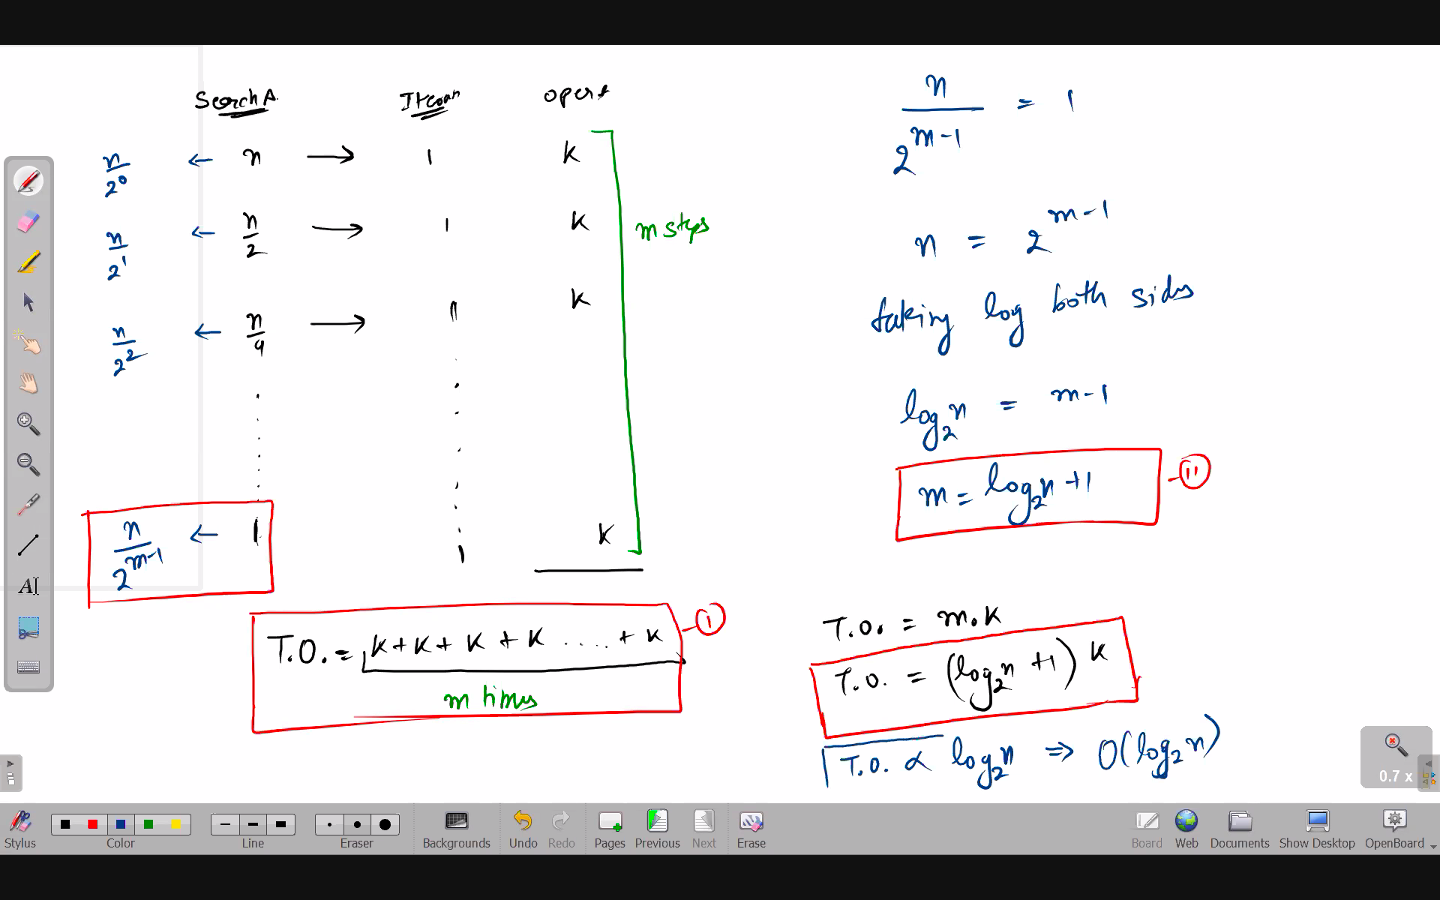 Search A Iteran opert
n/2⁰ ← n → 1 k
n/2¹ ← n/2 → 1 k
n/2² ← n/4 → 1 k
m steps
n/2^(m-1) ← 1 1 k
T.O. = k+k+k+k .....+ k - I
m times
n/2^(m-1) = 1
n = 2^(m-1)
taking log both sides
log₂n = m-1
m = log₂n +1 - II
T.O. = m.k
T.O. = (log₂n +1) k
T.O. ∝ log₂n ⇒ O(log₂n)
A
0.7 x
Stylus Color Line Eraser Backgrounds Undo Redo Pages Previous Next Erase Board Web Documents Show Desktop OpenBoard